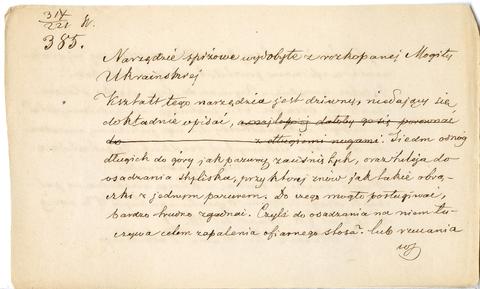 314
221 W.
385.
Narzędzie spiżowe wydobyte z rozkopanej Mogiły
Ukraińskiej
Kształt tego narzędzia jest dziwny, niedający się
dokładnie opisać, a najlepiej dałoby go się porównać
do z długiemi nogami. Siedm odnóg
długich do góry jak pazurny zaciśniętych, oraz tuleja do
osadzania styliska, przy której znów jak takie obrą-
czki z jednym pazurem. Do czego mogło posługiwać,
bardzo trudno zgadnąć. Czyli do osadzania na niem łu-
czywa celem zapalenia ofiarnego stosu? lub rzucania